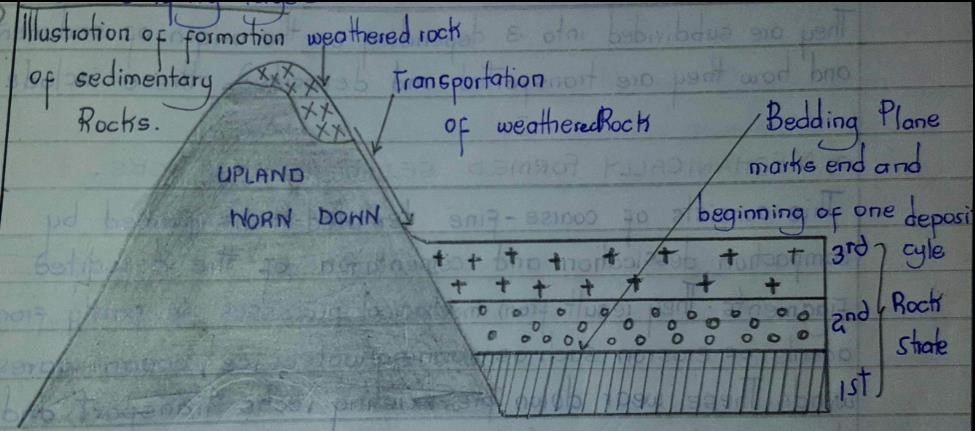 Illustration of formation
of sedimentary
Rocks.
weathered rock
Transportation
of weathered Rock
Bedding Plane
marks end and
beginning of one deposi
cyle
UPLAND
WORN DOWN
3rd
2nd
1st
Rock
Strate